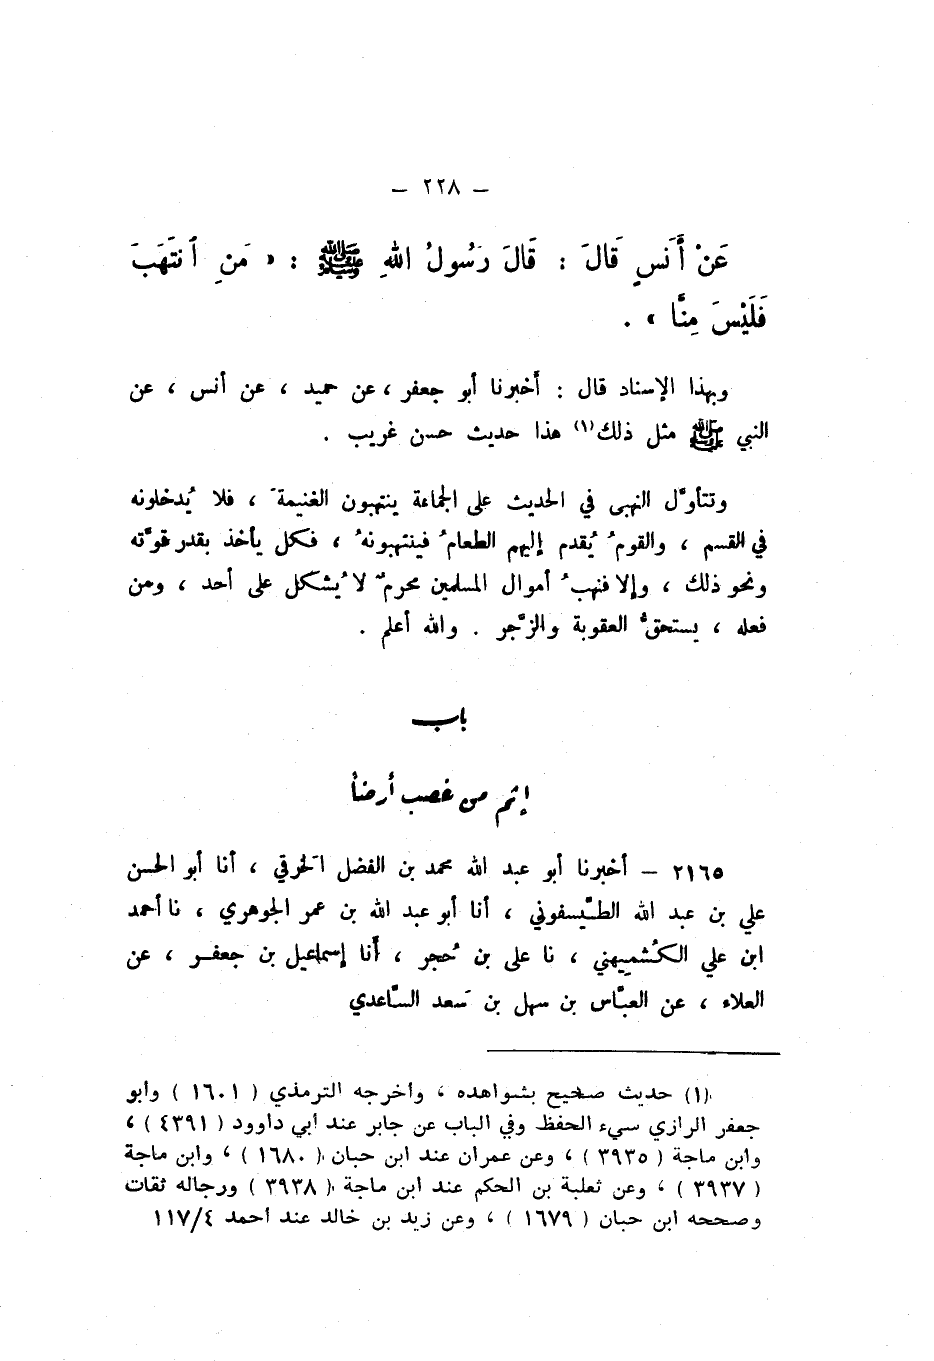 — ٢٢٨ —
عَنْ أَنَسٍ قَالَ : قَالَ رَسُولُ اللهِ ﷺ : « مَنِ ٱنتَهَبَ
فَلَيْسَ مِنَّا » .
وبهذا الإسناد قال : أخبرنا أبو جعفر ، عن حميد ، عن أنس ، عن
النبي ﷺ مثل ذلك(١) هذا حديث حسن غريب .
وتتأوَّل النهبى في الحديث على الجماعة ينتهبون الغنيمةَ ، فلا يُدخلونه
في القسم ، والقومُ يُقدم إليهم الطعامُ فينتهبونهُ ، فكل يأخذ بقدر قوَّته
ونحو ذلك ، وإلا فنهبُ أموال المسلمين محرمٌ لا يُشكل على أحد ، ومن
فعله ، يستحقُّ العقوبة والزَّجر . والله أعلم .
باب
إثم من غصب أرضاً
٢١٦٥ — أخبرنا أبو عبد الله محمد بن الفضل الخَرقي ، أنا أبو الحسن
علي بن عبد الله الطَّيسفوني ، أنا أبو عبد الله بن عمر الجوهري ، نا أحمد
ابن علي الكُشميهني ، نا علي بن حُجر ، أنا إسماعيل بن جعفر ، عن
العلاء ، عن العبَّاس بن سهل بن سَعد السَّاعدي
(١) حديث صحيح بشواهده ، وأخرجه الترمذي ( ١٦٠١ ) وأبو
جعفر الرازي سيء الحفظ وفي الباب عن جابر عند أبي داوود ( ٤٣٩١ ) ،
وابن ماجة ( ٣٩٣٥ ) ، وعن عمران عند ابن حبان ( ١٦٨٠ ) ، وابن ماجة
( ٣٩٣٧ ) ، وعن ثعلبة بن الحكم عند ابن ماجة ( ٣٩٣٨ ) ورجاله ثقات
وصححه ابن حبان ( ١٦٧٩ ) ، وعن زيد بن خالد عند أحمد ١١٧/٤